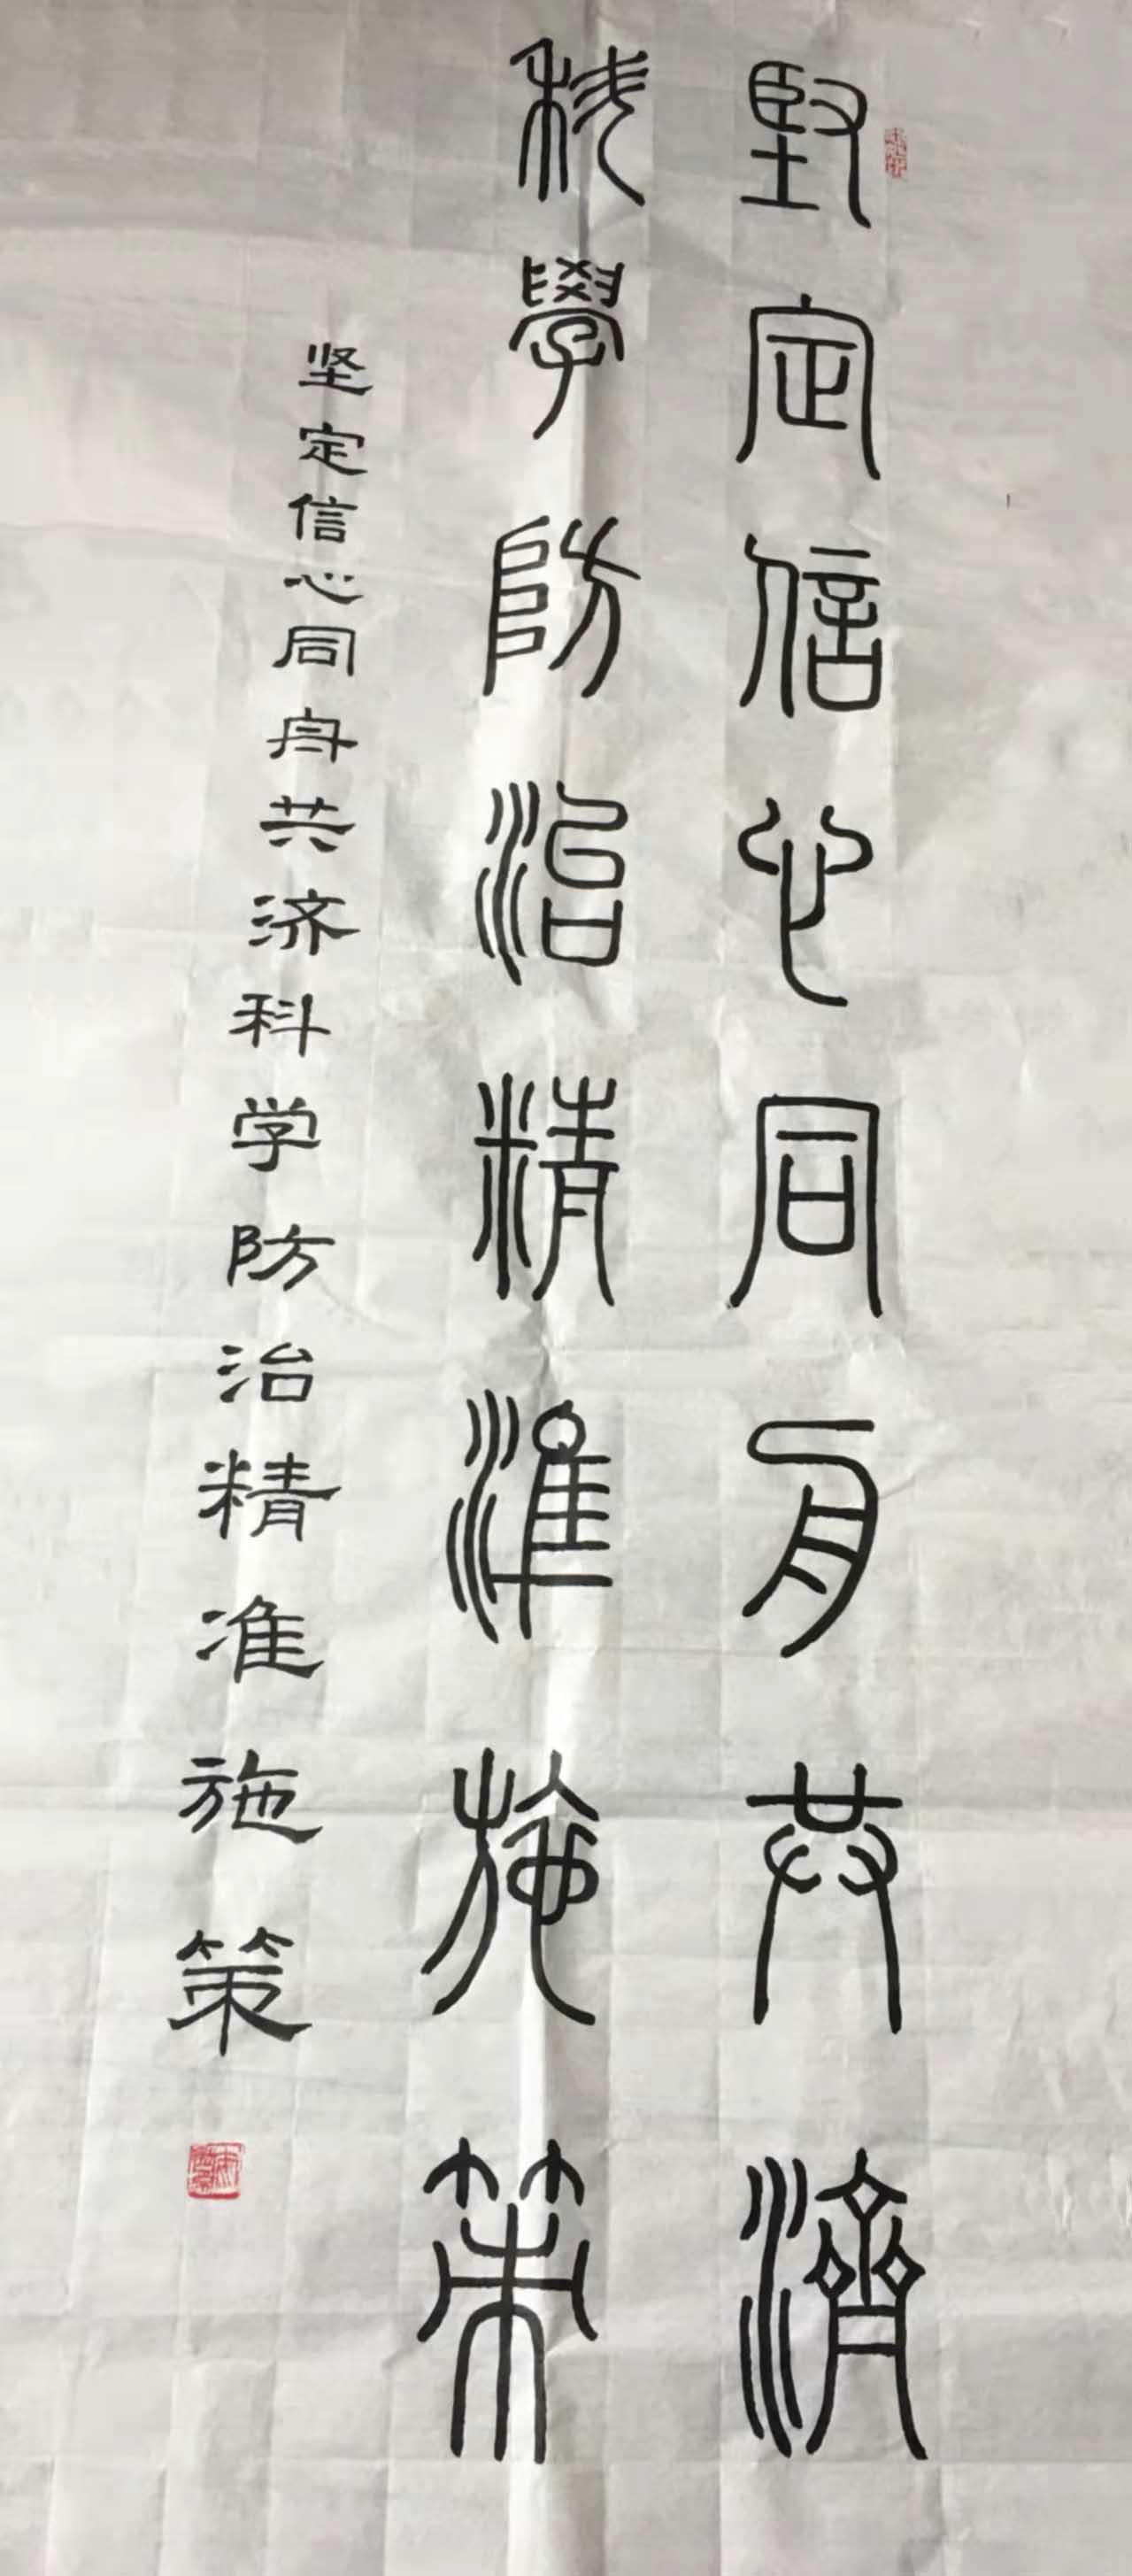 堅定信心同舟共濟
科學防治精準施策
坚定信心同舟共济科学防治精准施策